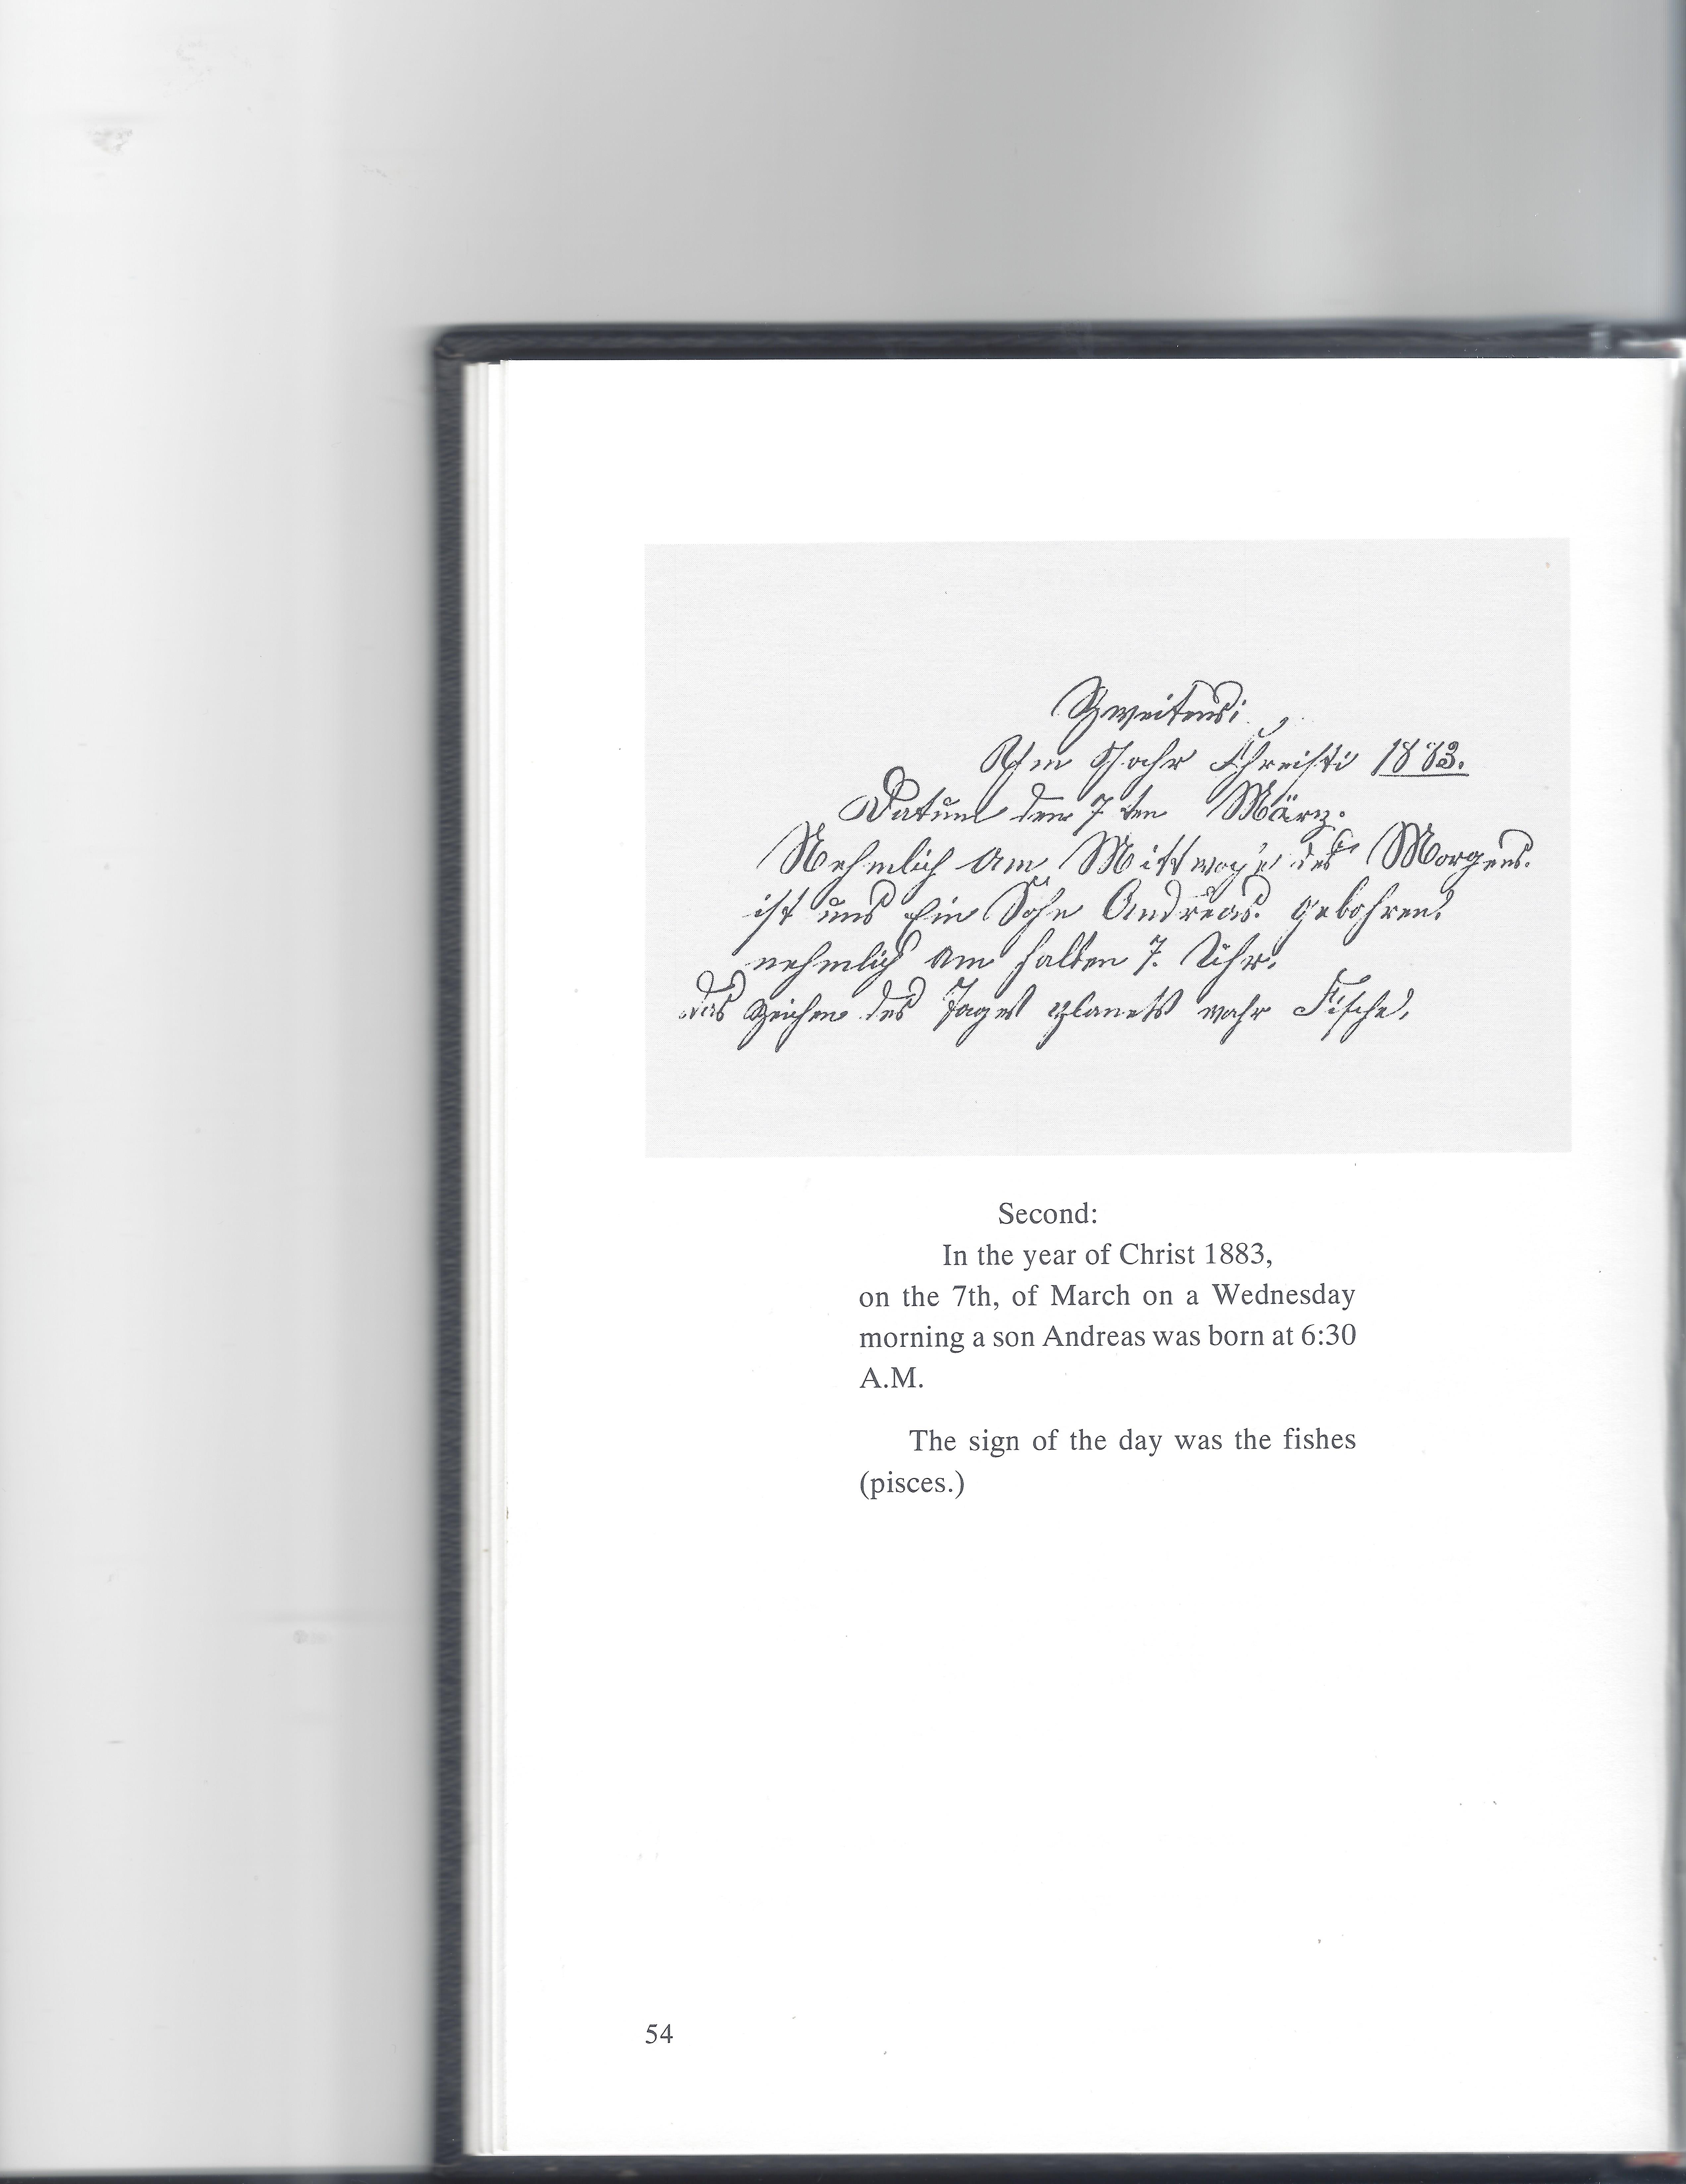 Zweitens:
Im Jahr Christi 1883.
Datum den 7ten März.
Nehmlich Am des Morgens.
ist uns Ein Sohn Andreas. gebohren.
nehmlich am halben 7. Uhr.
das Zeichen des Tages Planets wahr Fische.
Second:
In the year of Christ 1883,
on the 7th, of March on a Wednesday
morning a son Andreas was born at 6:30
A.M.
The sign of the day was the fishes
(pisces.)
54